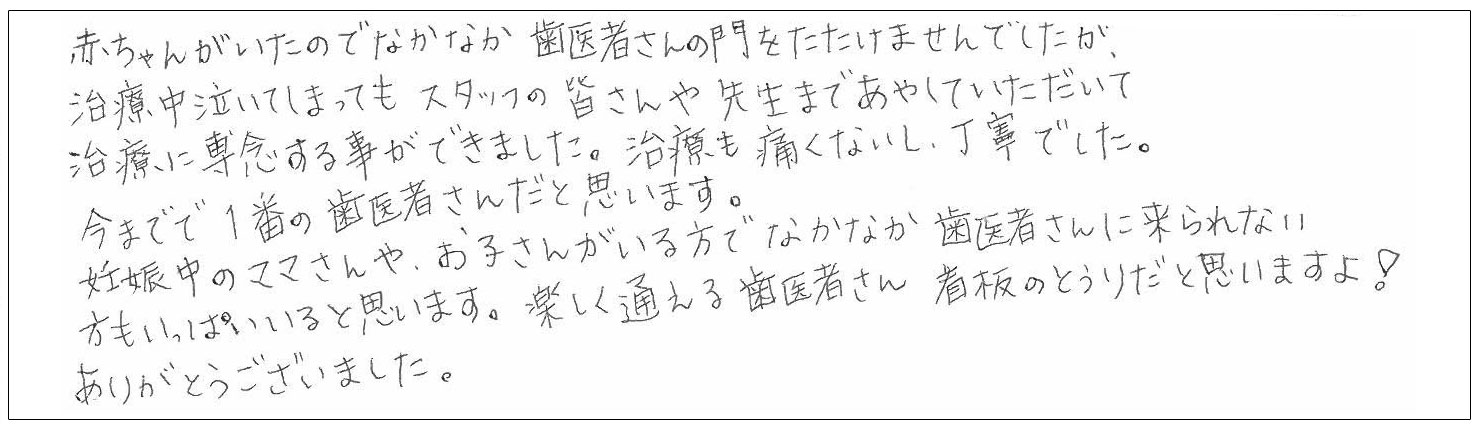 赤ちゃんがいたのでなかなか 歯医者さんの門をたたけませんでしたが、
治療中泣いてしまっても スタッフの 皆さんや 先生まであやしていただいて
治療に専念する事ができました。治療も 痛くないし、丁寧でした。
今までで 1番の 歯医者さんだと思います。
妊娠中のママさんや、お子さんがいる方で なかなか 歯医者さんに来られない
方もいっぱいいると思います。楽しく通える歯医者さん 看板のとうりだと思いますよ!
ありがとうございました。